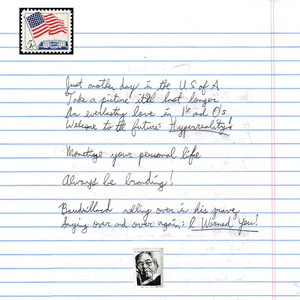 Just another day in the U S of A
Take a picture it'll last longer
An everlasting love in 1's and 0's
Welcome to the future: Hyperreality!
Monetize your personal life
Always be branding!
Baudrillard rolling over in his grave
Saying over and over again: I Warned You!